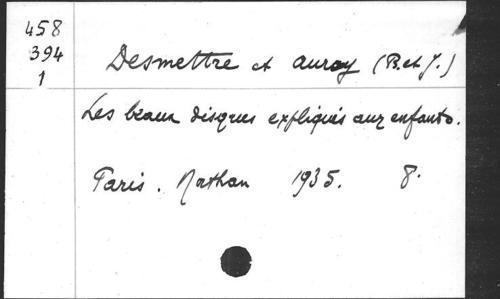 458
394
1
Desmettre et Auroy (B. et J.)
Les beaux disques expliqués aux enfants.
Paris. Nathan 1935. 8°.